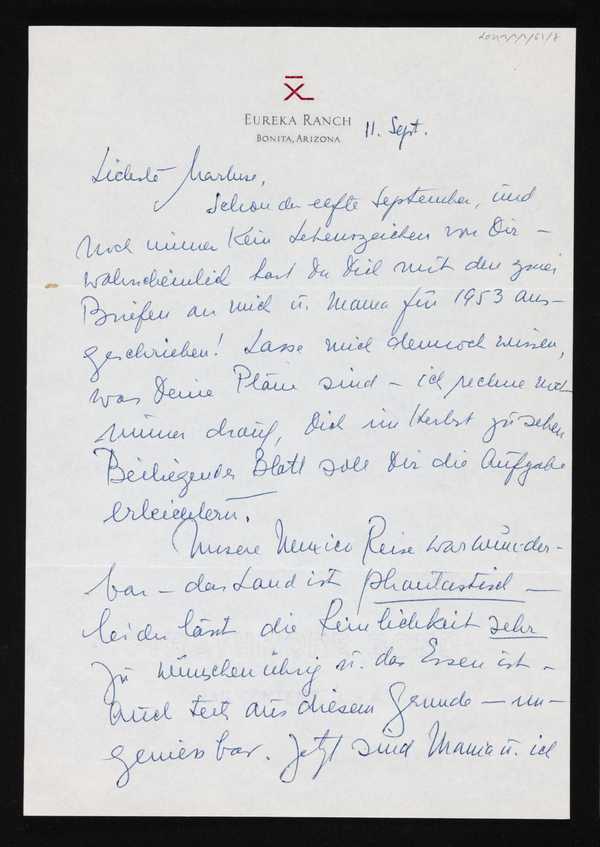 EUREKA RANCH
BONITA, ARIZONA
11. Sept.
Liebste Marlise,
Schon der elfte September, und
noch immer kein Lebenszeichen von Dir –
wahrscheinlich hast Du Dich mit den zwei
Briefen an mich u. Mama für 1953 aus-
geschrieben! Lasse mich dennoch wissen,
was Deine Pläne sind – ich rechne noch
immer drauf, Dich im Herbst zu sehen
Beiliegendes Blatt soll Dir die Aufgabe
erleichtern.
Unsere Mexico Reise war wunder-
bar – das Land ist phantastisch –
leider lässt die Reinlichkeit sehr
zu wünschen übrig u. das Essen ist –
auch teils aus diesem Grunde – un-
geniessbar. Jetzt sind Mama u. ich